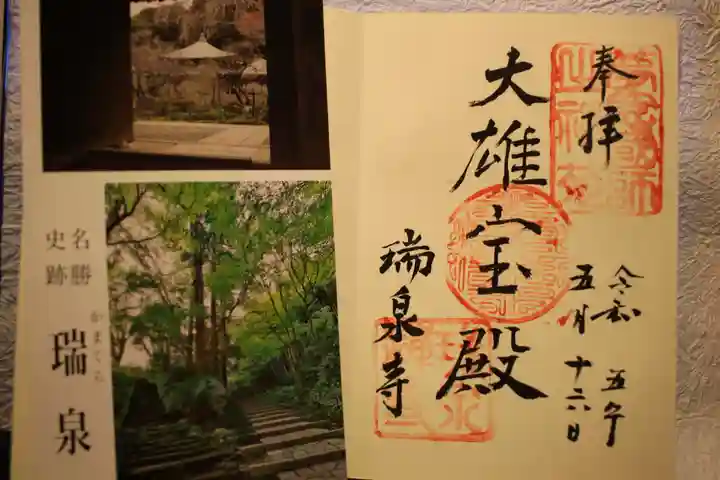 奉拝
大雄宝殿
瑞泉寺
令和五年
五月十六日
名勝
史跡
かまくら
瑞泉